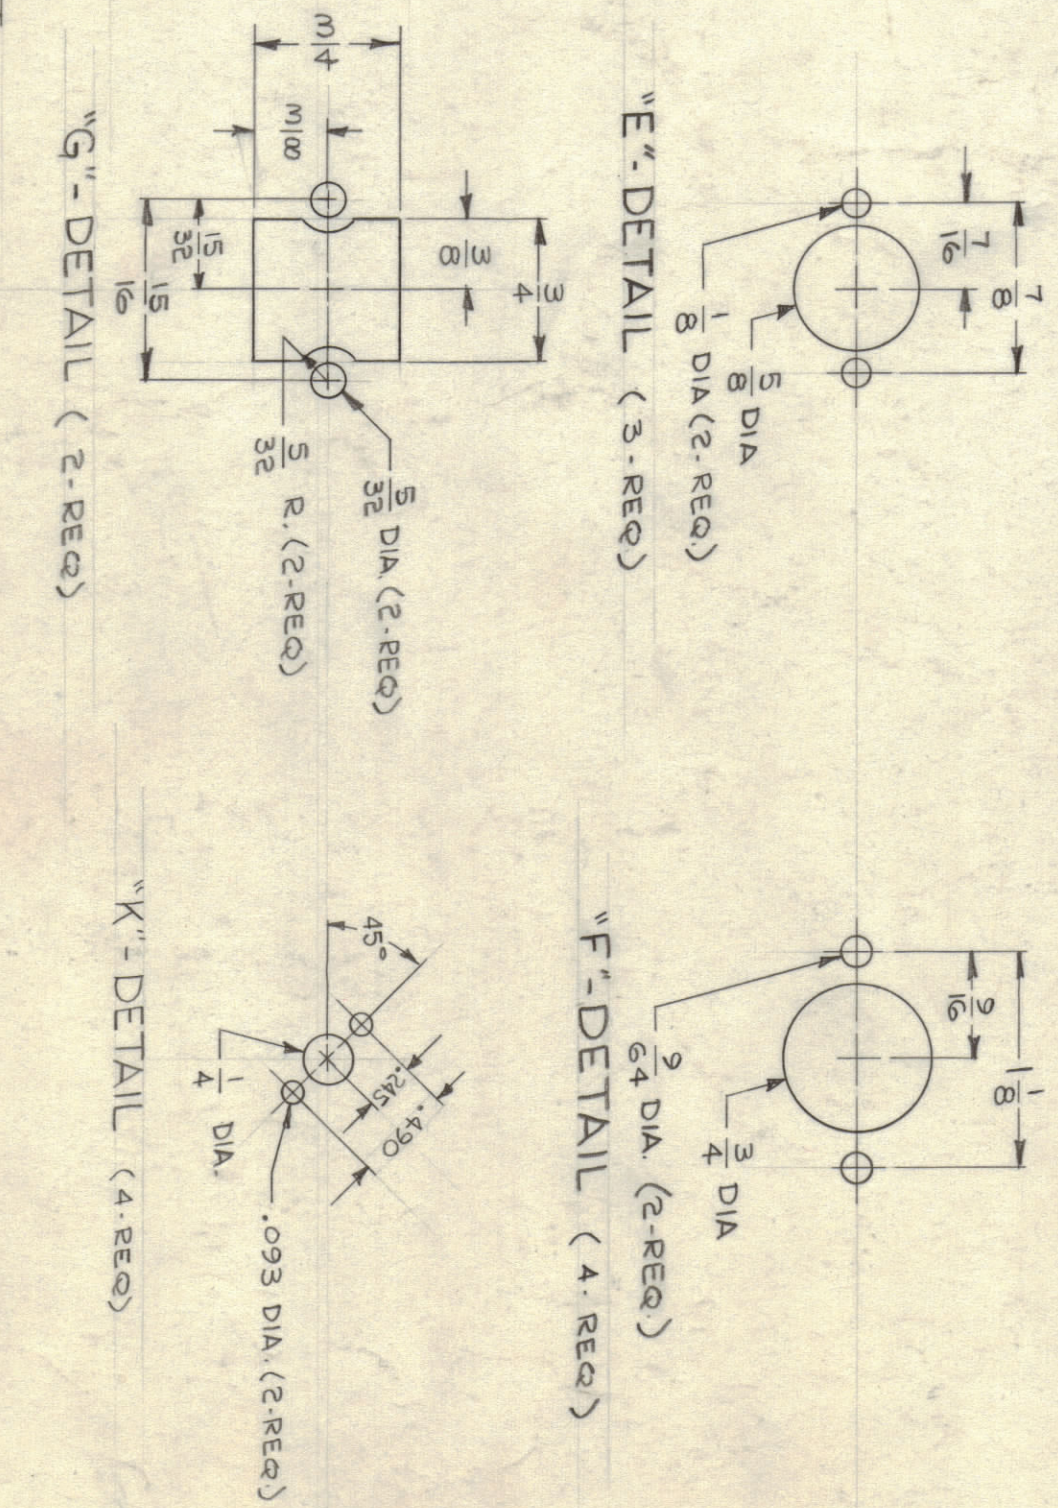 7/8
7/16
5/8 DIA
1/8 DIA (2-REQ.)
"E"-DETAIL (3-REQ.)
1 1/8
9/16
3/4 DIA
9/64 DIA. (2-REQ.)
"F"-DETAIL (4-REQ.)
3/4
3/8
3/4
3/8
15/32
15/16
5/32 DIA. (2-REQ)
5/32 R. (2-REQ)
"G"-DETAIL (2-REQ)
45°
.245
.490
.093 DIA. (2-REQ.)
1/4 DIA.
"K"-DETAIL (4-REQ)